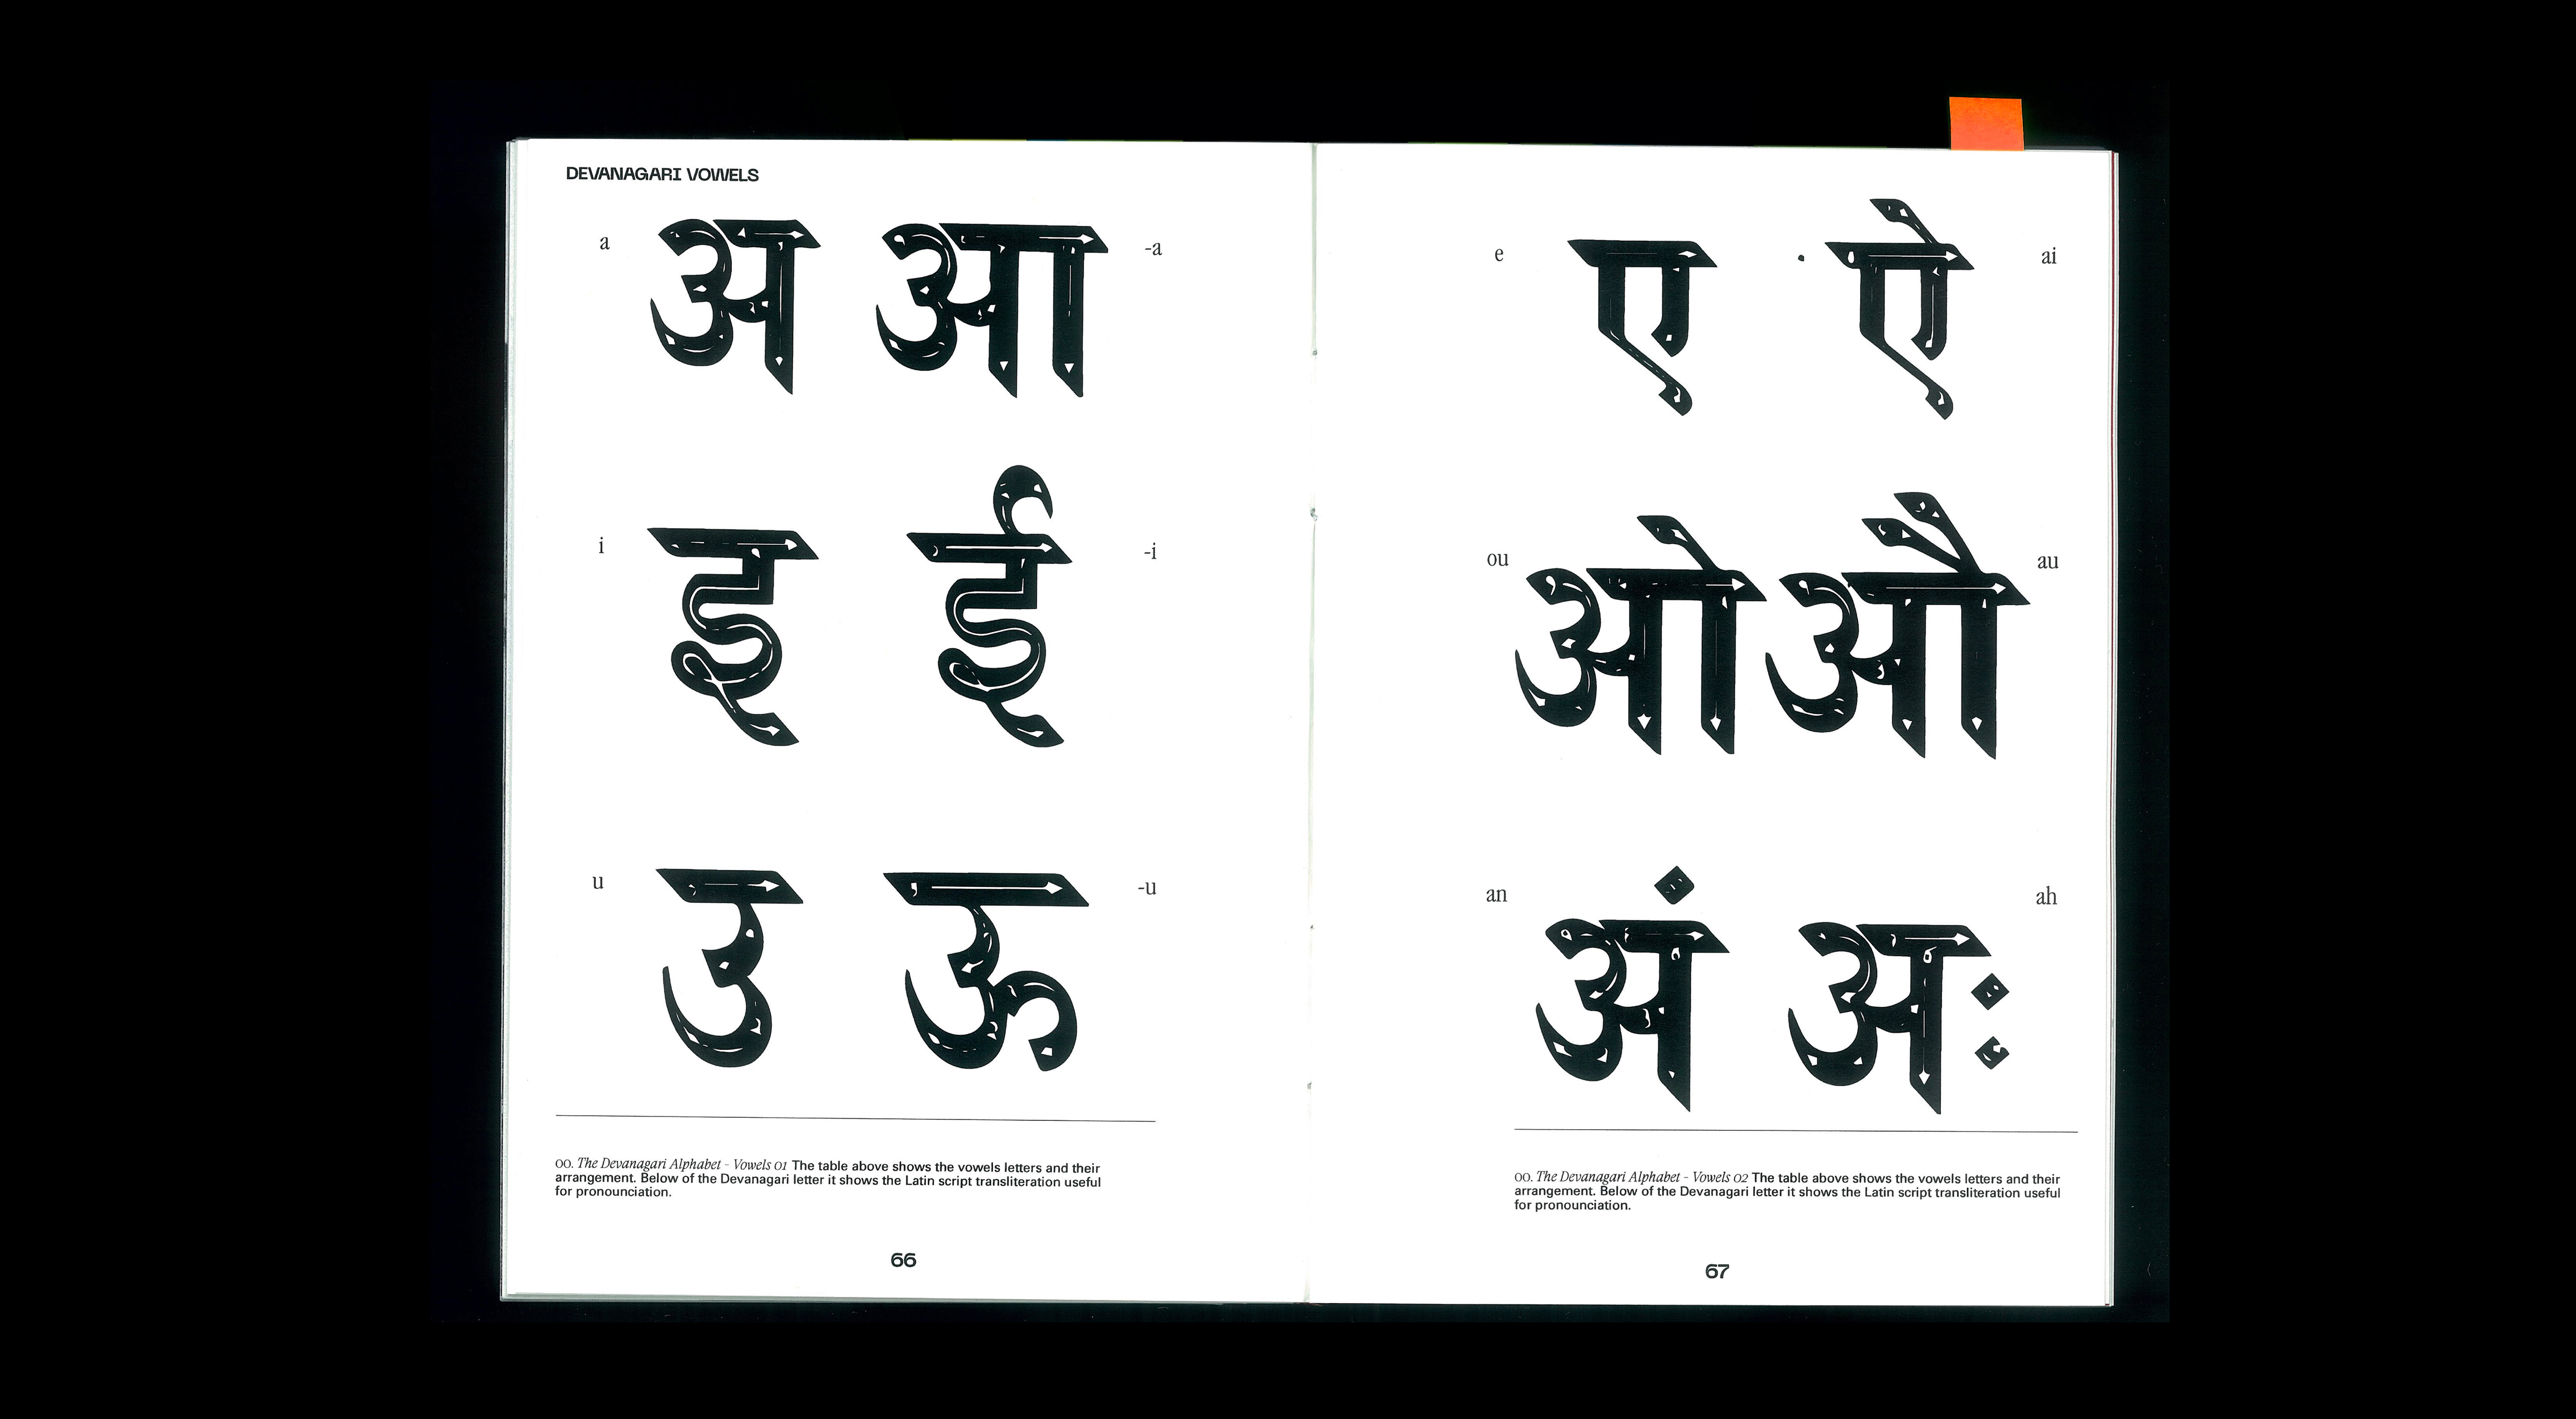 DEVANAGARI VOWELS
a अ आ -a
i इ ई -i
u उ ऊ -u
00. The Devanagari Alphabet - Vowels 01 The table above shows the vowels letters and their
arrangement. Below of the Devanagari letter it shows the Latin script transliteration useful
for pronounciation.
66
e ए ऐ ai
ou ओ औ au
an अं अः ah
00. The Devanagari Alphabet - Vowels 02 The table above shows the vowels letters and their
arrangement. Below of the Devanagari letter it shows the Latin script transliteration useful
for pronounciation.
67